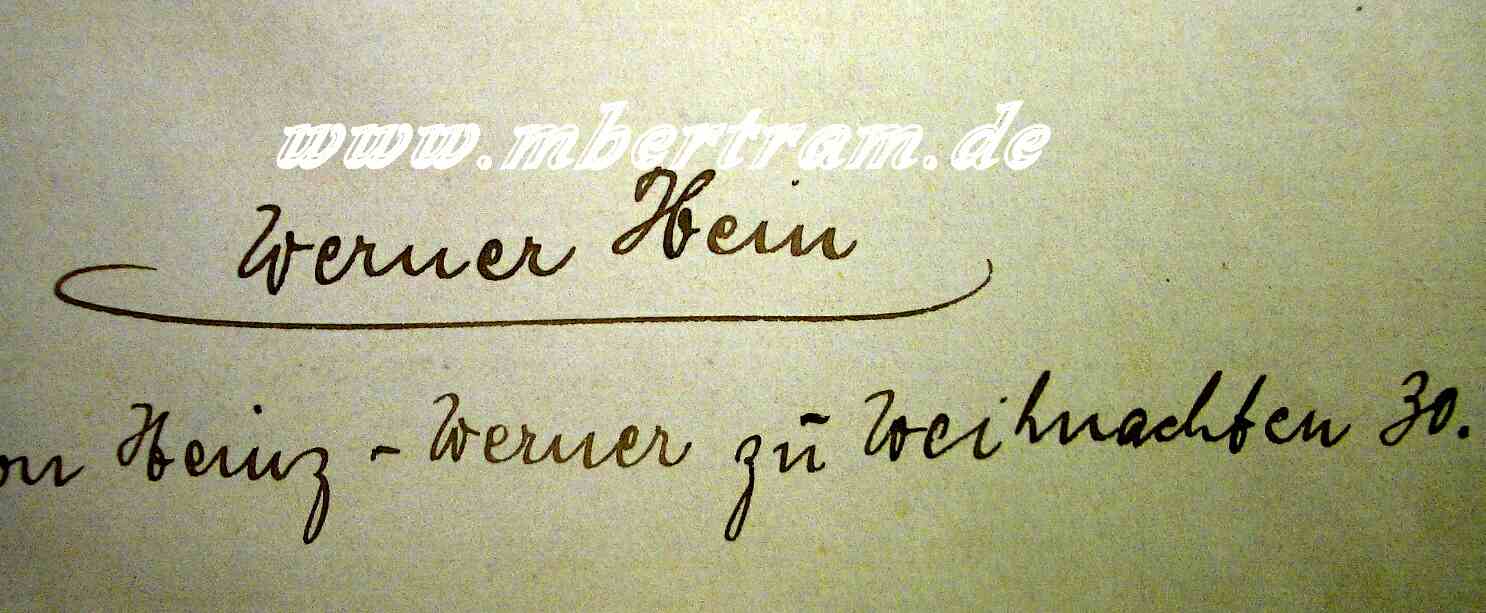 www.mbertram.de
Werner Hein
on Heinz - Werner zu Weihnachten 30.